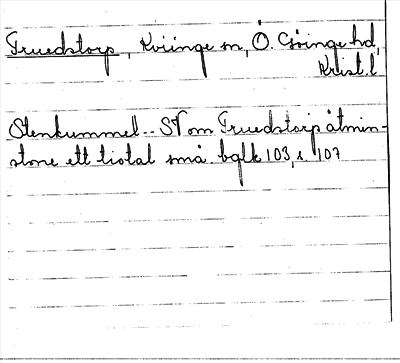 Truedstorp, Kviinge sn, Ö. Göinge hd,
Krist. l.
Stenkummel -- SV om Truedstorp åtmin-
stone ett tiotal små. bglk 103, s. 107